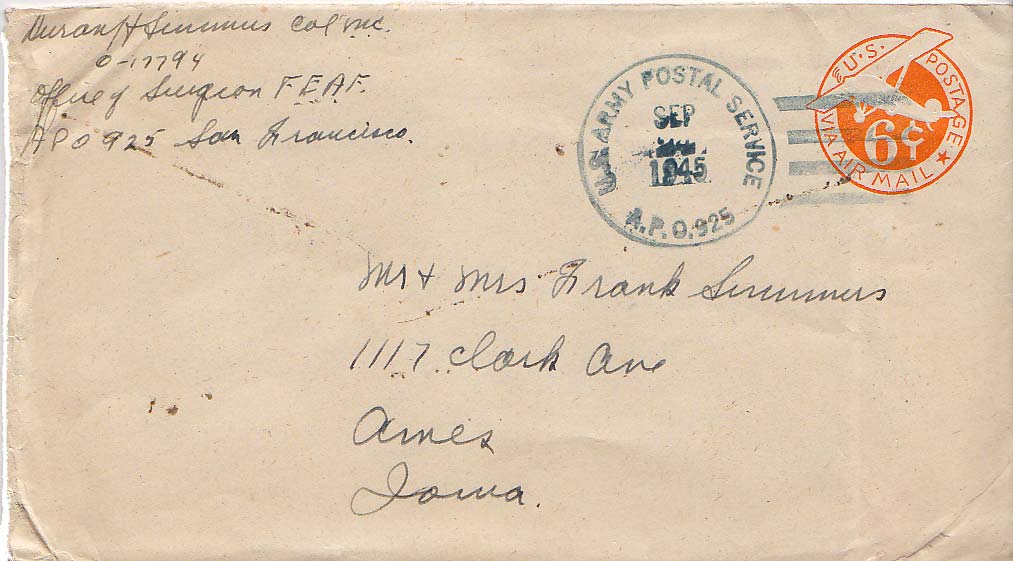 Duran H Summers Col MC.
0-17794
Office of Surgeon F.E.A.F.
APO 925 San Francisco.
U.S. ARMY POSTAL SERVICE
SEP
1945
A.P.O. 925
U.S. POSTAGE
6¢
VIA AIR MAIL
Mr + Mrs Frank Summers
1117 Clark Ave
Ames
Iowa.